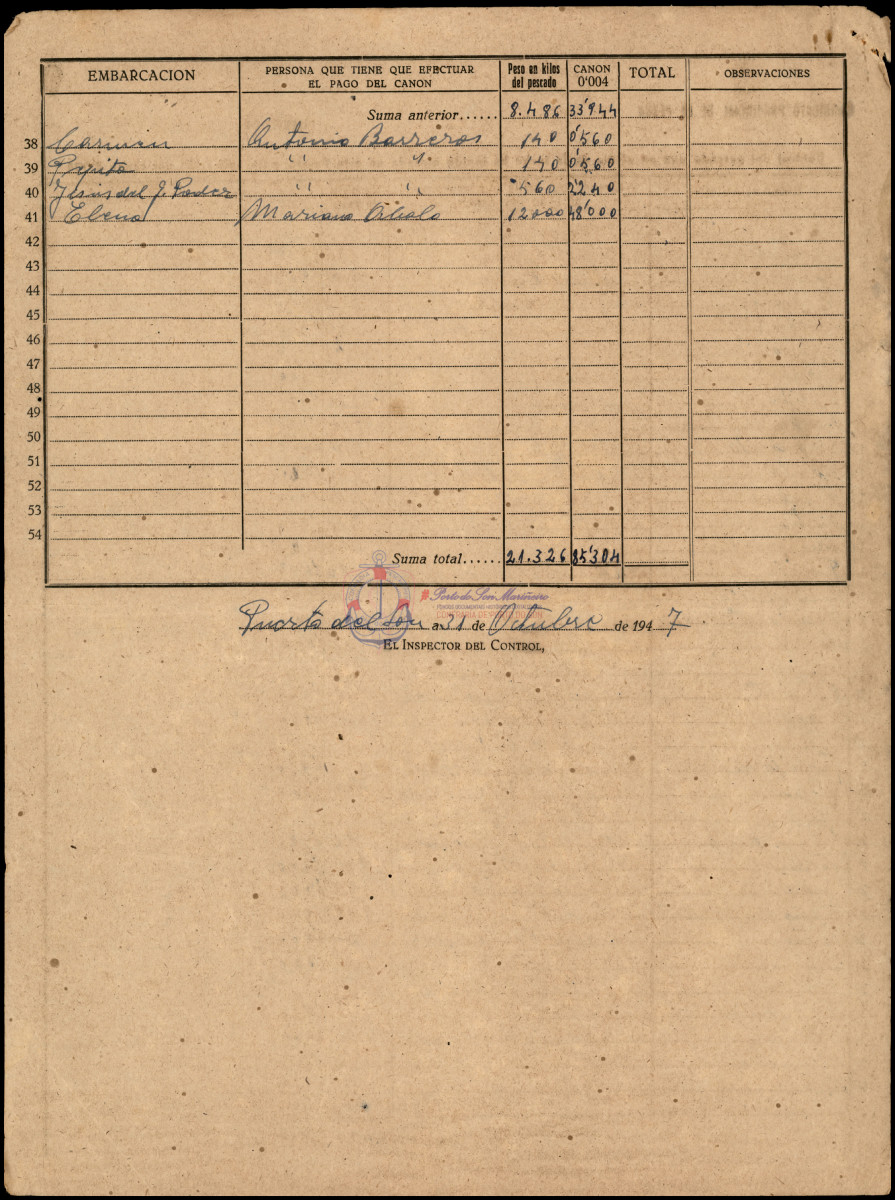 EMBARCACION PERSONA QUE TIENE QUE EFECTUAR EL PAGO DEL CANON Peso en kilos del pescado CANON 0'004 TOTAL OBSERVACIONES
Suma anterior...... 8.486 33'944
38 Carmen Antonio Barreros 140 0'560
39 Pepita " " 140 0'560
40 Jesus del G. Poder " " 560 2'240
41 Elena Mariano 12000 48'000
42
43
44
45
46
47
48
49
50
51
52
53
54
Suma total...... 21.326 85'304
Porto do Son Mariñeiro
Puerto del Son a 31 de Octubre de 1947
EL INSPECTOR DEL CONTROL,